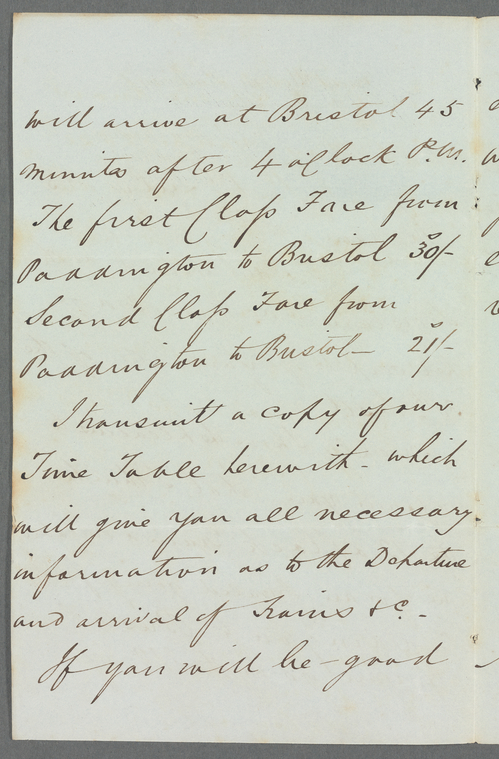 will arrive at Bristol 45
minutes after 4 o'Clock P.M.
The first Class Fare from
Paddington to Bristol 30/-
Second Class Fare from
Paddington to Bristol - 21/-
I transmit a copy of our
Time Table herewith - which
will give you all necessary
information as to the Departure
and arrival of Trains &c. -
If you will be - good